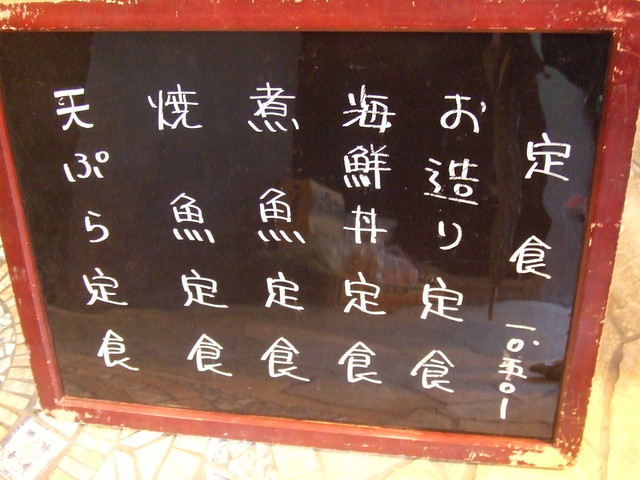 定食 一、〇五〇ー
お造り定食
海鮮丼定食
煮魚定食
焼魚定食
天ぷら定食